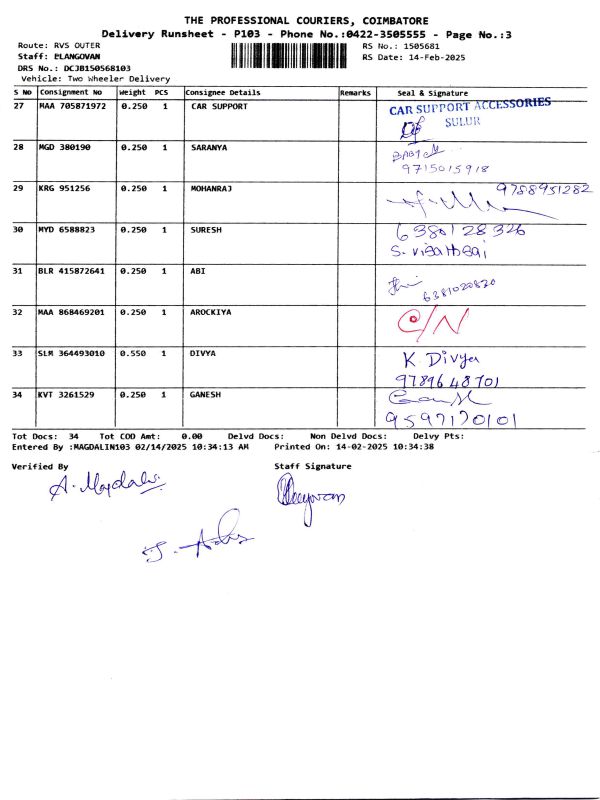 THE PROFESSIONAL COURIERS, COIMBATORE
Delivery Runsheet - P103 - Phone No.:0422-3505555 - Page No.:3
Route: RVS OUTER RS No.: 1505681
Staff: ELANGOVAN RS Date: 14-Feb-2025
DRS No.: DCJB150568103
Vehicle: Two Wheeler Delivery
S No Consignment No Weight PCS Consignee Details Remarks Seal & Signature
27 MAA 705871972 0.250 1 CAR SUPPORT CAR SUPPORT ACCESSORIES
SULUR
28 MGD 380190 0.250 1 SARANYA
9715015918
29 KRG 951256 0.250 1 MOHANRAJ 9788951282
30 MYD 6588823 0.250 1 SURESH 6380128326
31 BLR 415872641 0.250 1 ABI
6381020820
32 MAA 868469201 0.250 1 AROCKIYA C/N
33 SLM 364493010 0.550 1 DIVYA K Divya
9789648701
34 KVT 3261529 0.250 1 GANESH Ganesh
9597170101
Tot Docs: 34 Tot COD Amt: 0.00 Delvd Docs: Non Delvd Docs: Delvy Pts:
Entered By :MAGDALIN103 02/14/2025 10:34:13 AM Printed On: 14-02-2025 10:34:38
Verified By Staff Signature
A. Magdalin Elangovan